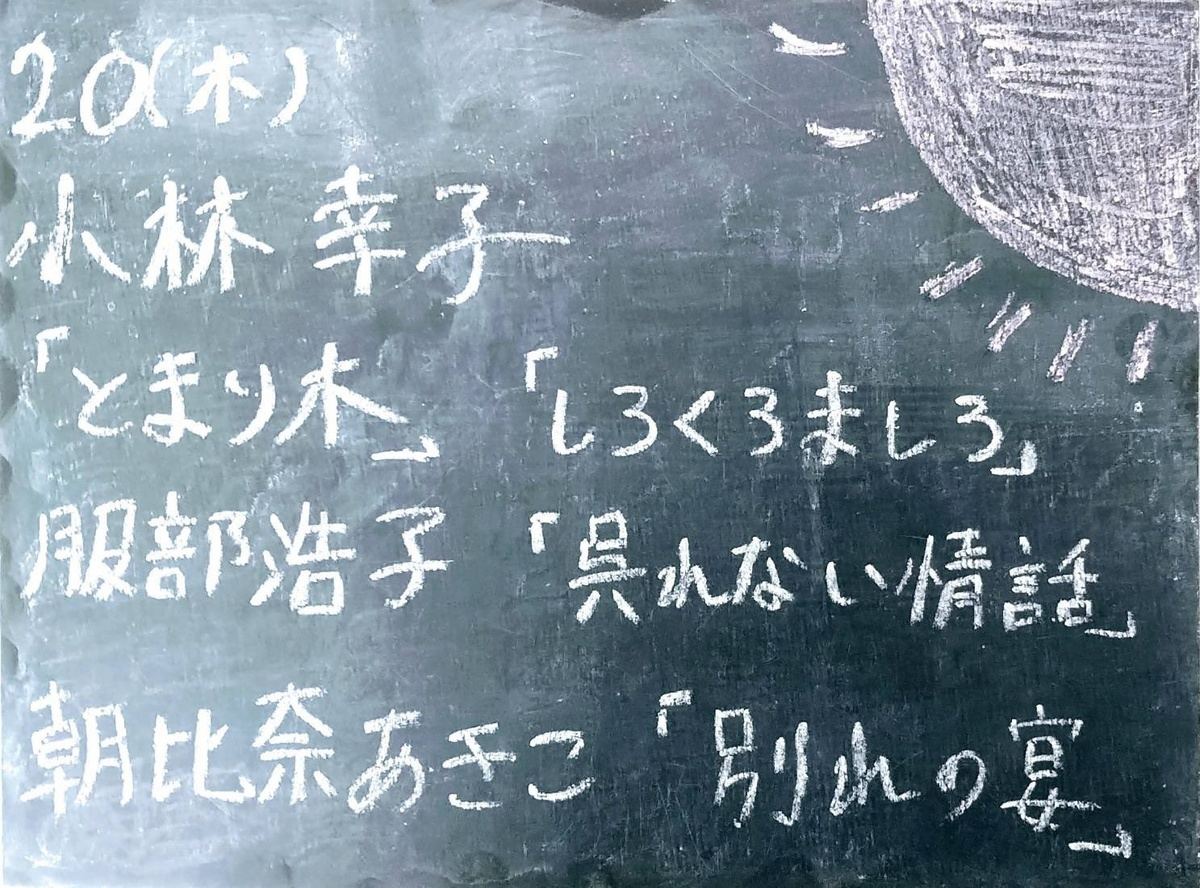 20(木)
小林幸子
「とまり木」「しろくろましろ」
服部浩子「呉れない情話」
朝比奈あきこ「別れの宴」